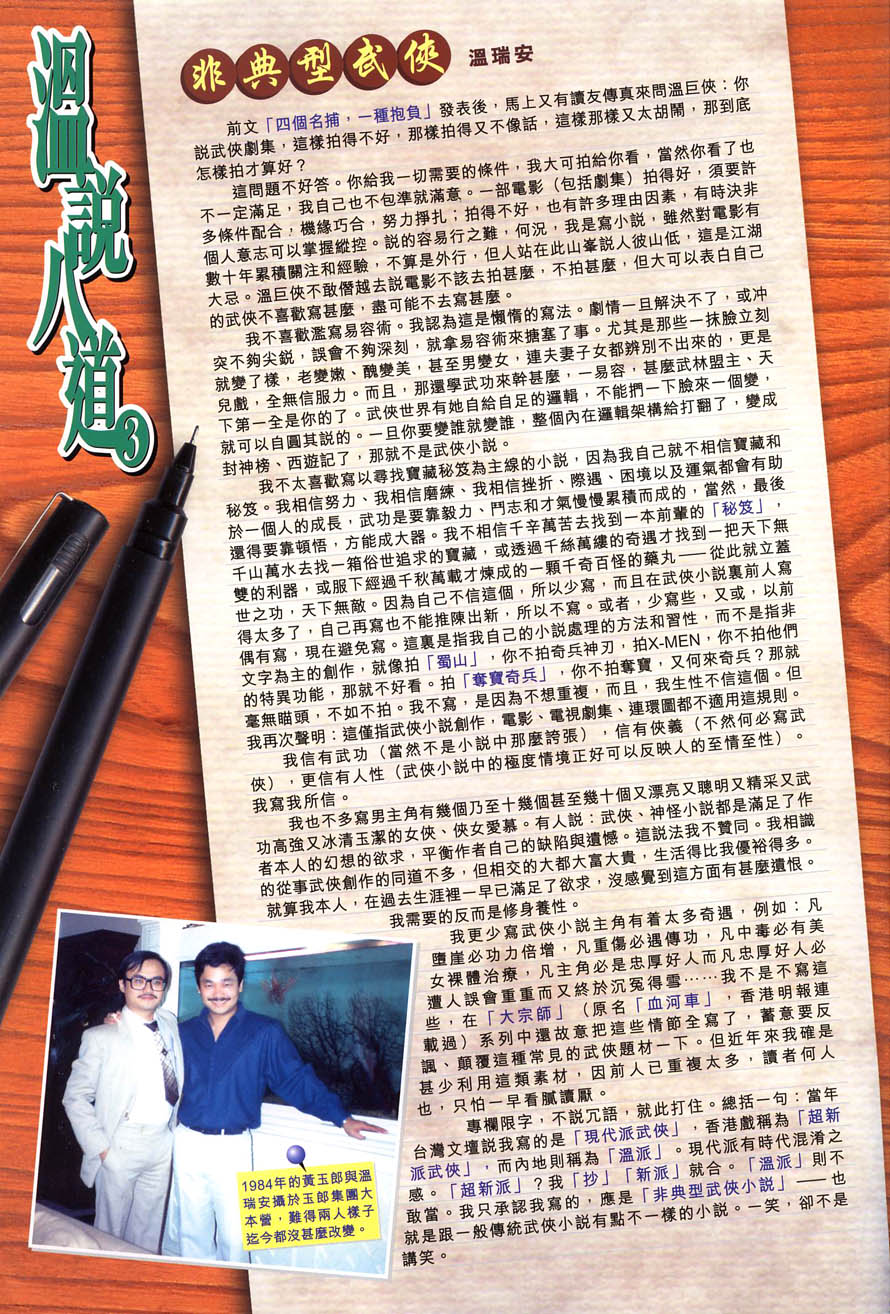 溫說八道3
非典型武俠
溫瑞安
前文「四個名捕，一種抱負」發表後，馬上又有讀友傳真來問溫巨俠：你
說武俠劇集，這樣拍得不好，那樣拍得又不像話，這樣那樣又太胡鬧，那到底
怎樣拍才算好？
這問題不好答。你給我一切需要的條件，我大可拍給你看，當然你看了也
不一定滿足，我自己也不包準就滿意。一部電影（包括劇集）拍得好，須要許
多條件配合，機緣巧合，努力爭扎；拍得不好，也有許多理由因素，有時決非
個人意志可以掌握縱控。說的容易行之難，何況，我是寫小説，雖然對電影有
數十年累積關注和經驗，不算是外行，但人站在此山峯説人彼山低，這是江湖
大忌。溫巨俠不敢僭越去説電影不該去拍甚麼，不拍甚麼，但大可以表白自己
的武俠不喜歡寫甚麼，盡可能不去寫甚麼。
我不喜歡濫寫易容術。我認為這是懶惰的寫法。劇情一旦解決不了，或冲
突不夠尖銳，誤會不夠深刻，就拿易容術來搪塞了事。尤其是那些一抹臉立刻
就變了樣，老變嫩、醜變美，甚至男變女，連夫妻子女都辨別不出來的，更是
兒戲，全無信服力。而且，那還學武功來幹甚麼，一易容，甚麼武林盟主、天
下第一全是你的了。武俠世界有她自給自足的邏輯，不能捫一下臉來一個變，
就可以自圓其説的。一旦你要變誰就變誰，整個內在邏輯架構給打翻了，變成
封神榜、西遊記了，那就不是武俠小説。
我不太喜歡寫以尋找寶藏秘笈為主線的小説，因為我自己就不相信寶藏和
秘笈。我相信努力、我相信磨練、我相信挫折、際遇、困境以及運氣都會有助
於一個人的成長，武功是要靠毅力、鬥志和才氣慢慢累積而成的，當然，最後
還得要靠頓悟，方能成大器。我不相信千辛萬苦去找到一本前輩的「秘笈」，
千山萬水去找一箱俗世追求的寶藏，或透過千絲萬縷的奇遇才找到一把天下無
雙的利器，或服下經過千秋萬載才煉成的一顆千奇百怪的藥丸——從此就立蓋
世之功，天下無敵。因為自己不信這個，所以少寫，而且在武俠小説裏前人寫
得太多了，自己再寫也不能推陳出新，所以不寫。或者，少寫些，又或，以前
偶有寫，現在避免寫。這裏是指我自己的小説處理的方法和習性，而不是指非
文字為主的創作，就像拍「蜀山」，你不拍奇兵神刃，拍X-MEN，你不拍他們
的特異功能，那就不好看。拍「奪寶奇兵」，你不拍奪寶，又何來奇兵？那就
毫無瞄頭，不如不拍。我不寫，是因為不想重複，而且，我生性不信這個。但
我再次聲明：這僅指武俠小説創作，電影、電視劇集、連環圖都不適用這規則。
我信有武功（當然不是小説中那麼誇張），信有俠義（不然何必寫武
俠），更信有人性（武俠小説中的極度情境正好可以反映人的至情至性）。
我寫我所信。
我也不多寫男主角有幾個乃至十幾個甚至幾十個又漂亮又聰明又精采又武
功高強又冰清玉潔的女俠、俠女愛慕。有人説：武俠、神怪小説都是滿足了作
者本人的幻想的欲求，平衡作者自己的缺陷與遺憾。這説法我不贊同。我相識
的從事武俠創作的同道不多，但相交的大都大富大貴，生活得比我優裕得多。
就算我本人，在過去生涯裡一早已滿足了欲求，沒感覺到這方面有甚麼遺恨。
我需要的反而是修身養性。
我更少寫武俠小説主角有着太多奇遇，例如：凡
墮崖必功力倍增，凡重傷必遇傳功，凡中毒必有美
女裸體治療，凡主角必是忠厚好人而凡忠厚好人必
遭人誤會重重而又終於沉冤得雪……我不是不寫這
些，在「大宗師」（原名「血河車」，香港明報連
載過）系列中還故意把這些情節全寫了，蓄意要反
諷、顛覆這種常見的武俠題材一下。但近年來我確是
甚少利用這類素材，因前人已重複太多，讀者何人
也，只怕一早看膩讀厭。
專欄限字，不説冗語，就此打住。總括一句：當年
台灣文壇説我寫的是「現代派武俠」，香港戲稱為「超新
派武俠」，而內地則稱為「溫派」。現代派有時代混淆之
感。「超新派」？我「抄」「新派」就合。「溫派」則不
敢當。我只承認我寫的，應是「非典型武俠小説」——也
就是跟一般傳統武俠小説有點不一樣的小説。一笑，卻不是
講笑。
1984年的黃玉郎與溫
瑞安攝於玉郎集團大
本營，難得兩人樣子
迄今都沒甚麼改變。